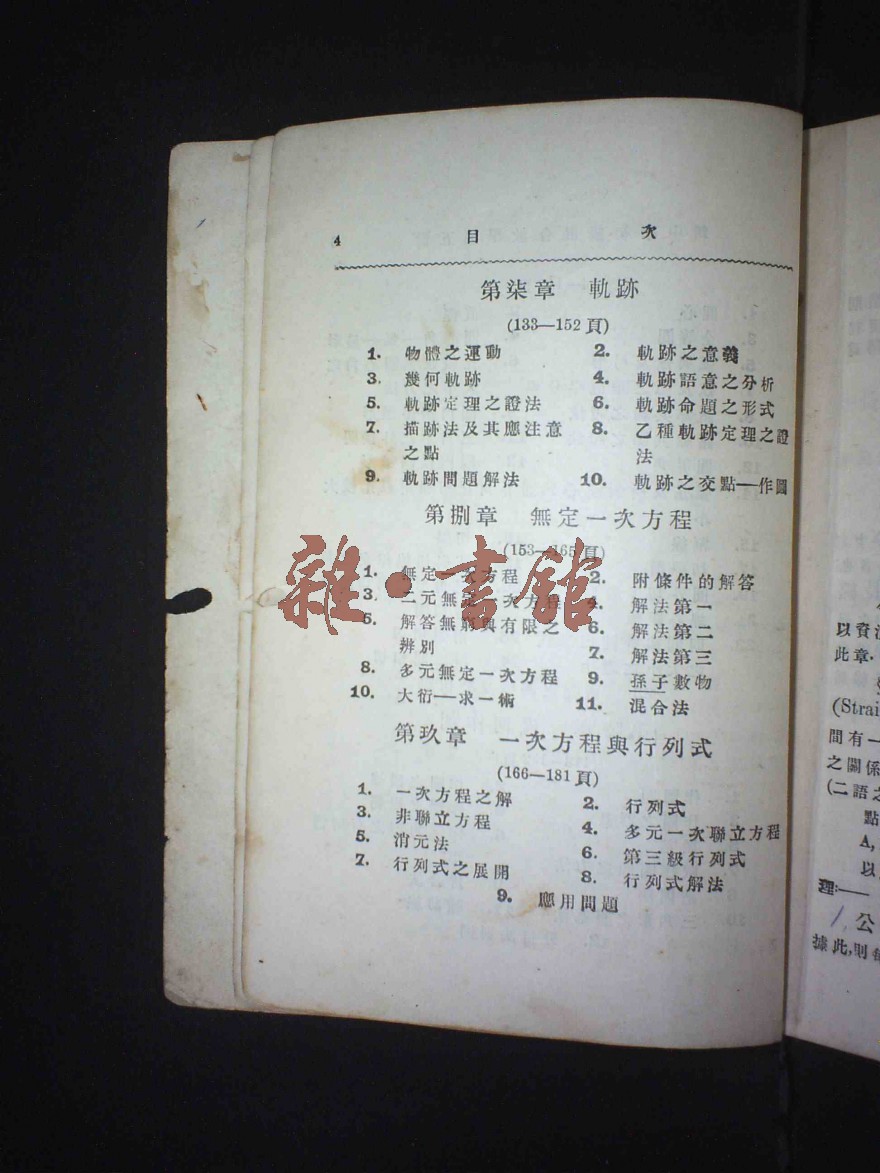 4 目 次
第柒章 軌跡
(133—152頁)
1. 物體之運動 2. 軌跡之意義
3. 幾何軌跡 4. 軌跡語意之分析
5. 軌跡定理之證法 6. 軌跡命題之形式
7. 描跡法及其應注意之點 8. 乙種軌跡定理之證法
9. 軌跡問題解法 10. 軌跡之交點—作圖
第捌章 無定一次方程
(153—165頁)
1. 無定一次方程 2. 附條件的解答
3. 二元無定一次方程 4. 解法第一
5. 解答無窮與有限之辨別 6. 解法第二
7. 解法第三
8. 多元無定一次方程 9. 孫子數物
10. 大衍—求一術 11. 混合法
第玖章 一次方程與行列式
(166—181頁)
1. 一次方程之解 2. 行列式
3. 非聯立方程 4. 多元一次聯立方程
5. 消元法 6. 第三級行列式
7. 行列式之展開 8. 行列式解法
9. 應用問題
雜·書館
以資
此章·
(Strai
間有一
之關係
(二語之
點
A,
以
理:—
公
據此,則